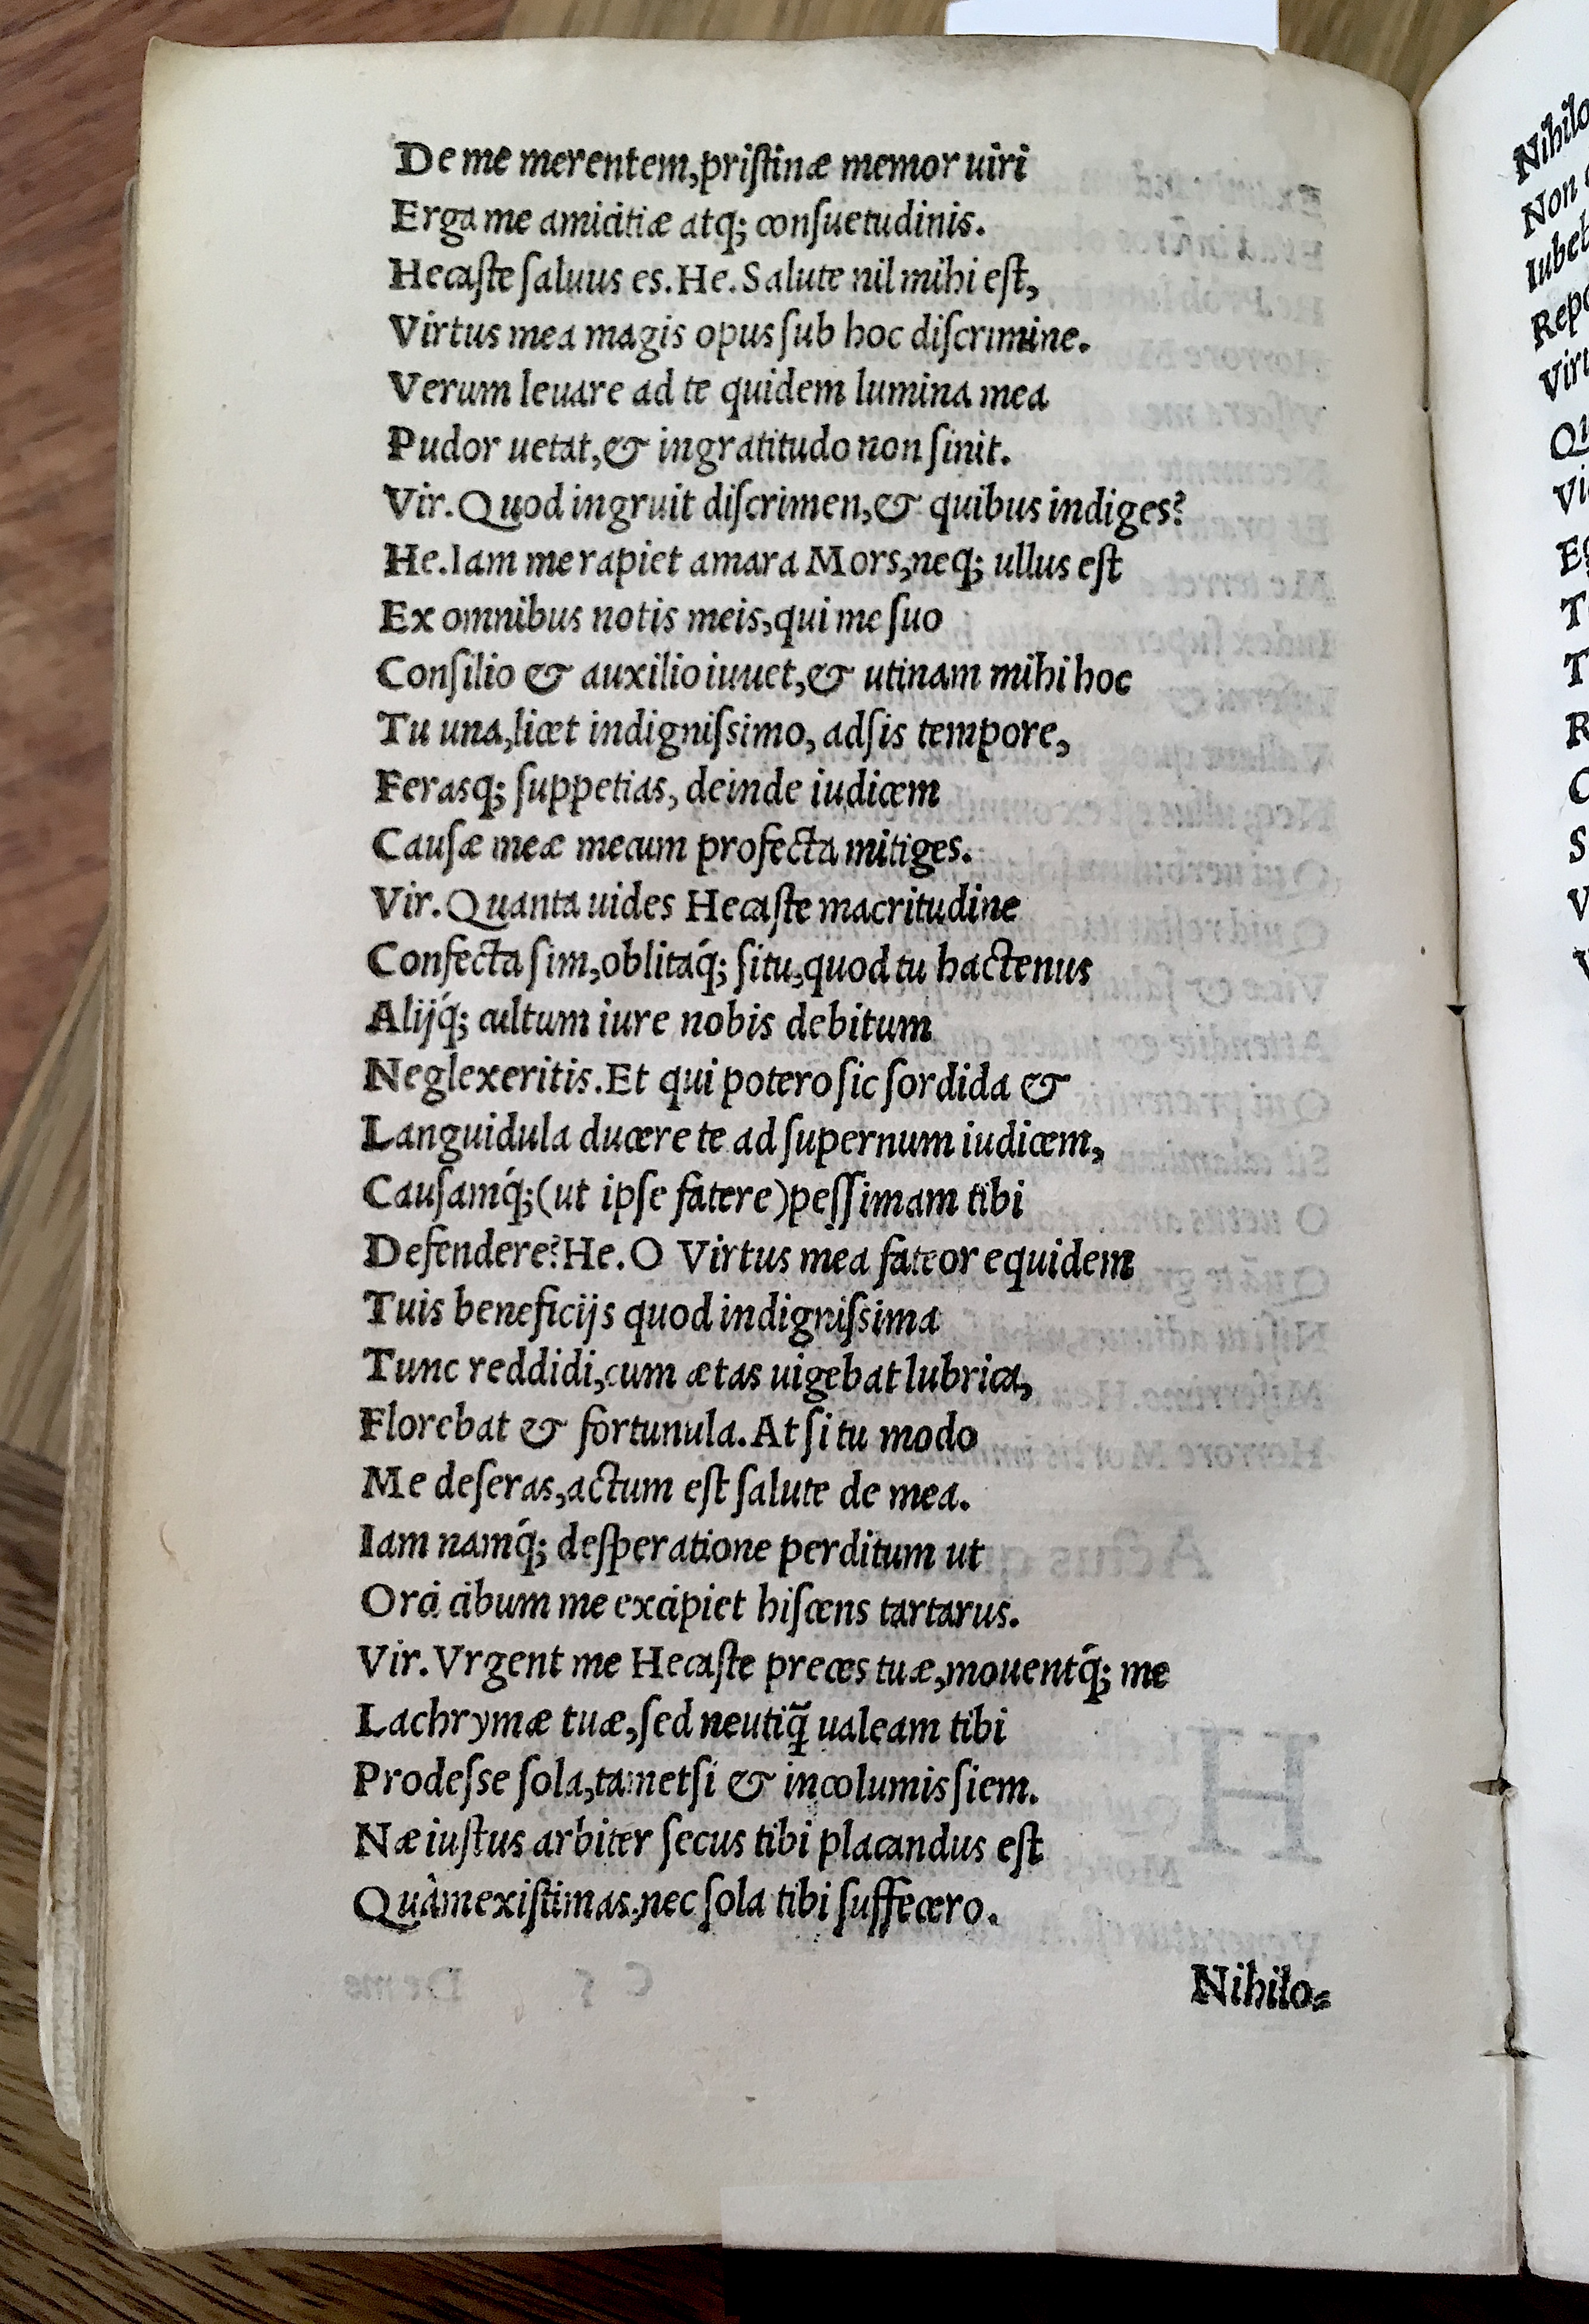 De me merentem, priſtinæ memor uiri
Erga me amicitiæ atq; conſuetudinis.
Hecaſte ſaluus es. He. Salute nil mihi eſt,
Virtus mea magis opus ſub hoc diſcrimine.
Verum leuare ad te quidem lumina mea
Pudor uetat, & ingratitudo non ſinit.
Vir. Quod ingruit diſcrimen, & quibus indiges?
He. Iam me rapiet amara Mors, neq; ullus eſt
Ex omnibus notis meis, qui me ſuo
Conſilio & auxilio iuuet, & utinam mihi hoc
Tu una, licet indigniſsimo, adſis tempore,
Ferasq; ſuppetias, deinde iudicem
Cauſæ meæ mecum profecta mitiges.
Vir. Quanta uides Hecaſte macritudine
Confecta ſim, oblitaq́; ſitu, quod tu hactenus
Alijq́; cultum iure nobis debitum
Neglexeritis. Et qui potero ſic ſordida &
Languidula ducere te ad ſupernum iudicem,
Cauſamq́; (ut ipſe fatere) peſſimam tibi
Defendere? He. O Virtus mea fateor equidem
Tuis beneficijs quod indigniſsima
Tunc reddidi, cum ætas uigebat lubrica,
Florebat & fortunula. At ſi tu modo
Me deſeras, actum eſt ſalute de mea.
Iam namq́; deſperatione perditum ut
Orci cibum me excipiet hiſcens tartarus.
Vir. Vrgent me Hecaſte preces tuæ, mouentq́; me
Lachrymæ tuæ, ſed neutiq̃ ualeam tibi
Prodeſse ſola, tametſi & incolumis ſiem.
Næ iuſtus arbiter ſecus tibi placandus eſt
Quàm exiſtimas, nec ſola tibi ſuffecero.
Nihilo-
Nihilo
Non
Iubet
Repo
Virt